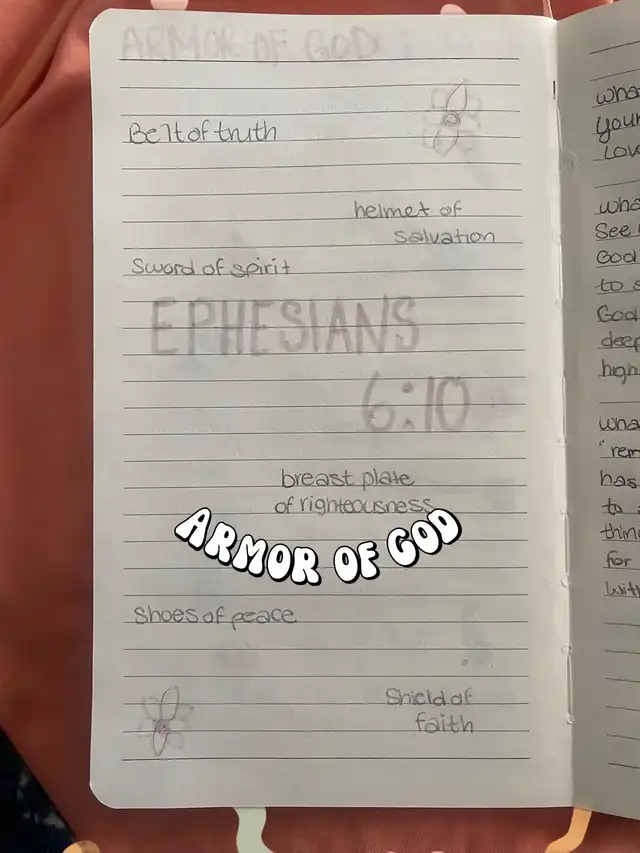 ARMOR OF GOD
Belt of truth
helmet of
salvation
Sword of spirit
EPHESIANS
6:10
breast plate
of righteousness
ARMOR OF GOD
Shoes of peace
Shield of
faith
your
to
God
deep
high
has
to
for